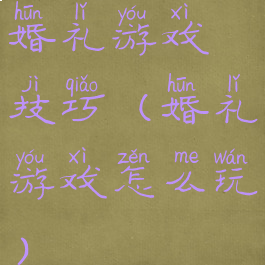 hūn lǐ yóu xì
婚礼游戏
jì qiǎo hūn lǐ
技巧(婚礼
yóu xì zěn me wán
游戏怎么玩
)